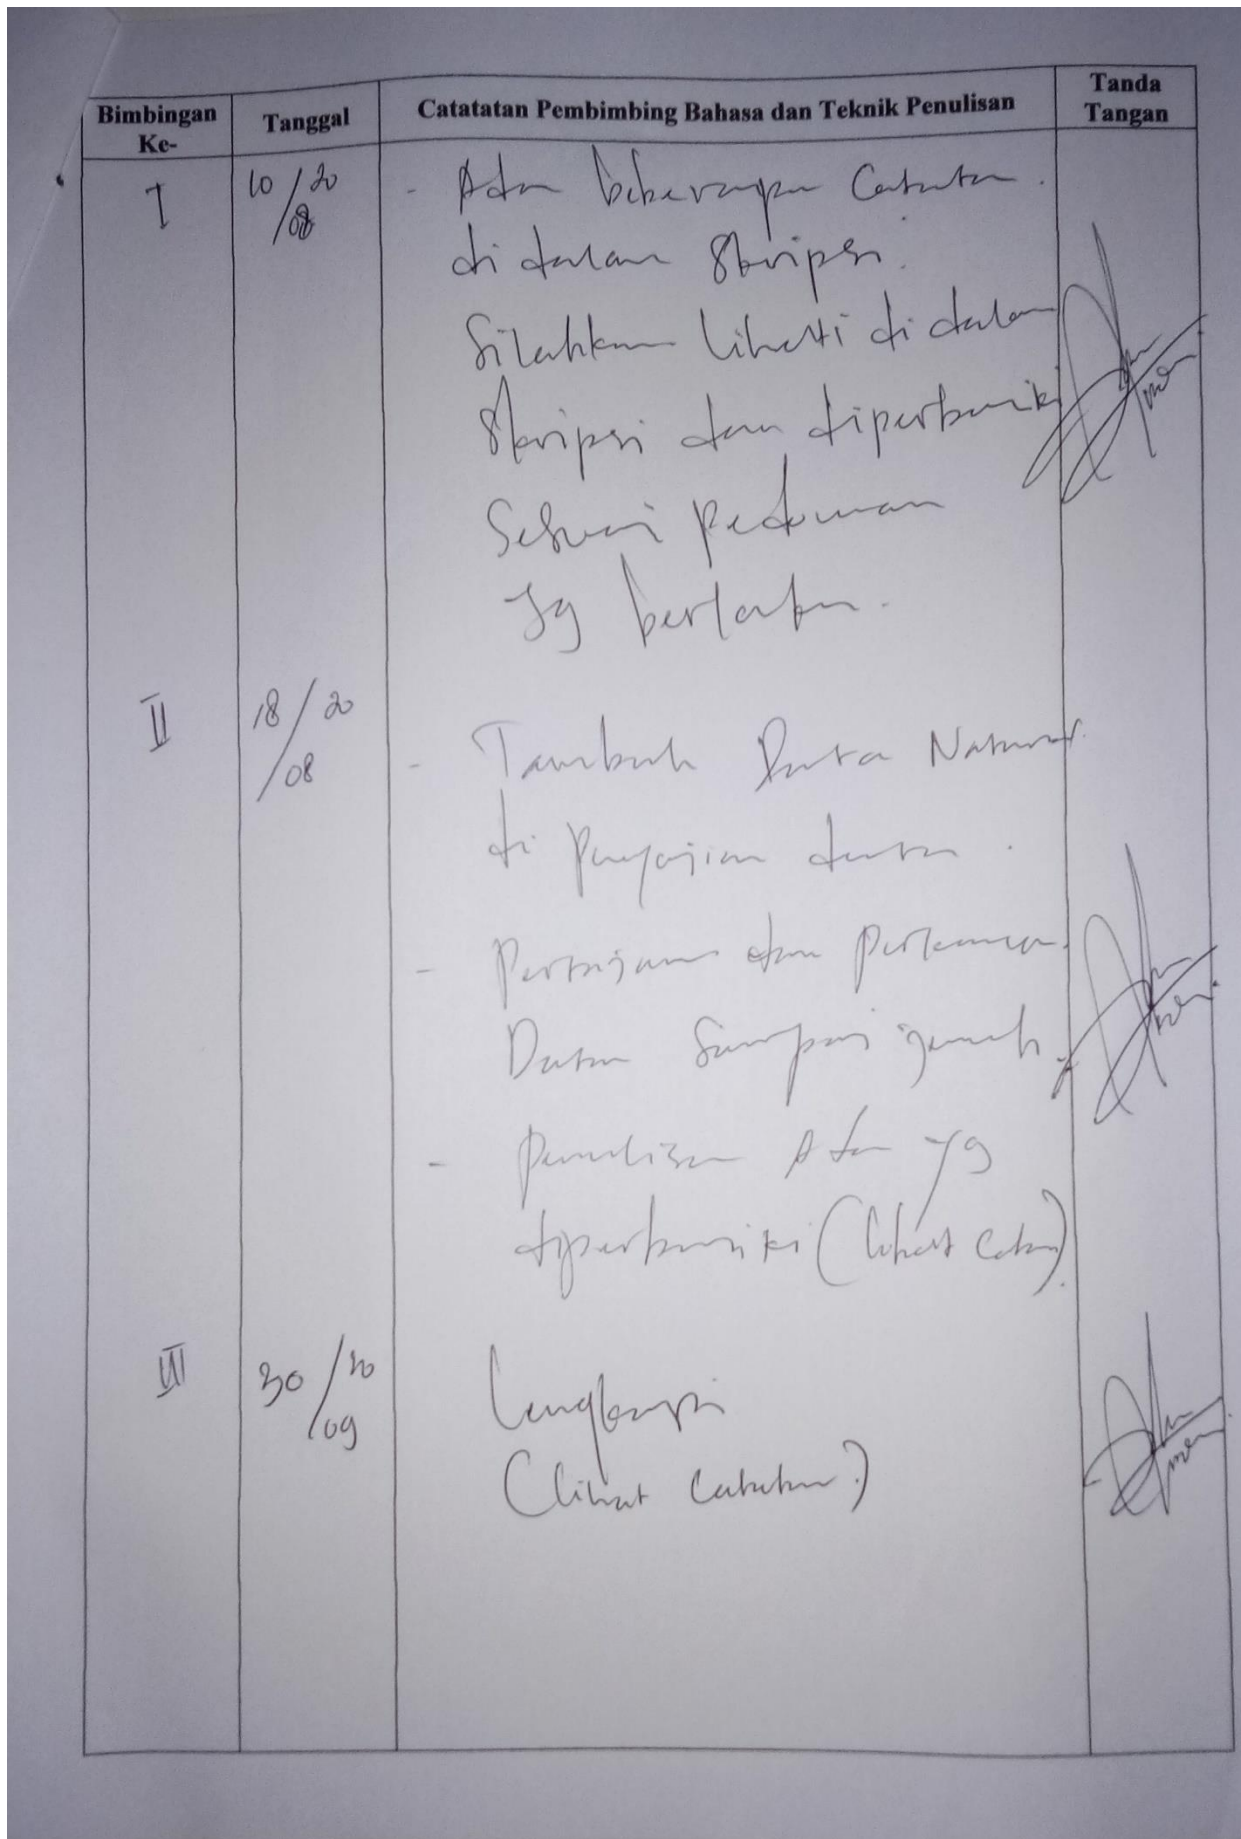 Bimbingan Ke-
Tanggal
Catatatan Pembimbing Bahasa dan Teknik Penulisan
Tanda Tangan
I
10/20
/08
- Ada beberapa Catatan.
di dalam Skripsi.
Silahkan lihat di dalam
Skripsi dan diperbaiki
Sesuai pedoman
Yg berlaku.
II
18/20
/08
- Tambah Data
di penyajian data.
- Pertajam dan
Data Sampai jenuh.
- Penulisan Ada yg
diperbaiki (lihat
III
30/20
/09
Lengkapi
(lihat Catatan)